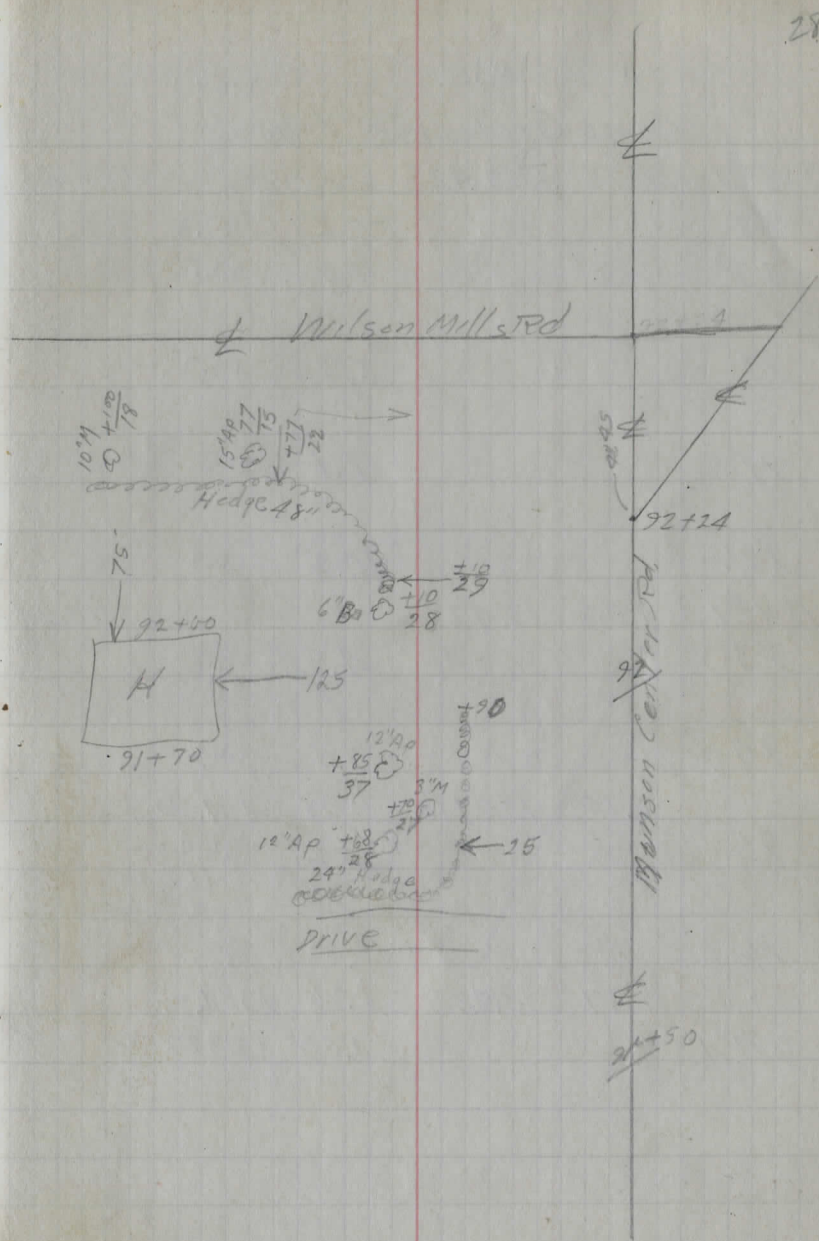 28
Wilson Mills Rd
10"M
+100
18
15"Ap
77
15
+77
22
Hedge 48"
92+24
+10
29
6"Ba
+10
28
75
92+60
H
125
91+70
92
Munson Center Rd
90
12"Ap
+85
37
3"M
+70
27
12"Ap
+68
28
25
24" Hedge
Drive
91+50